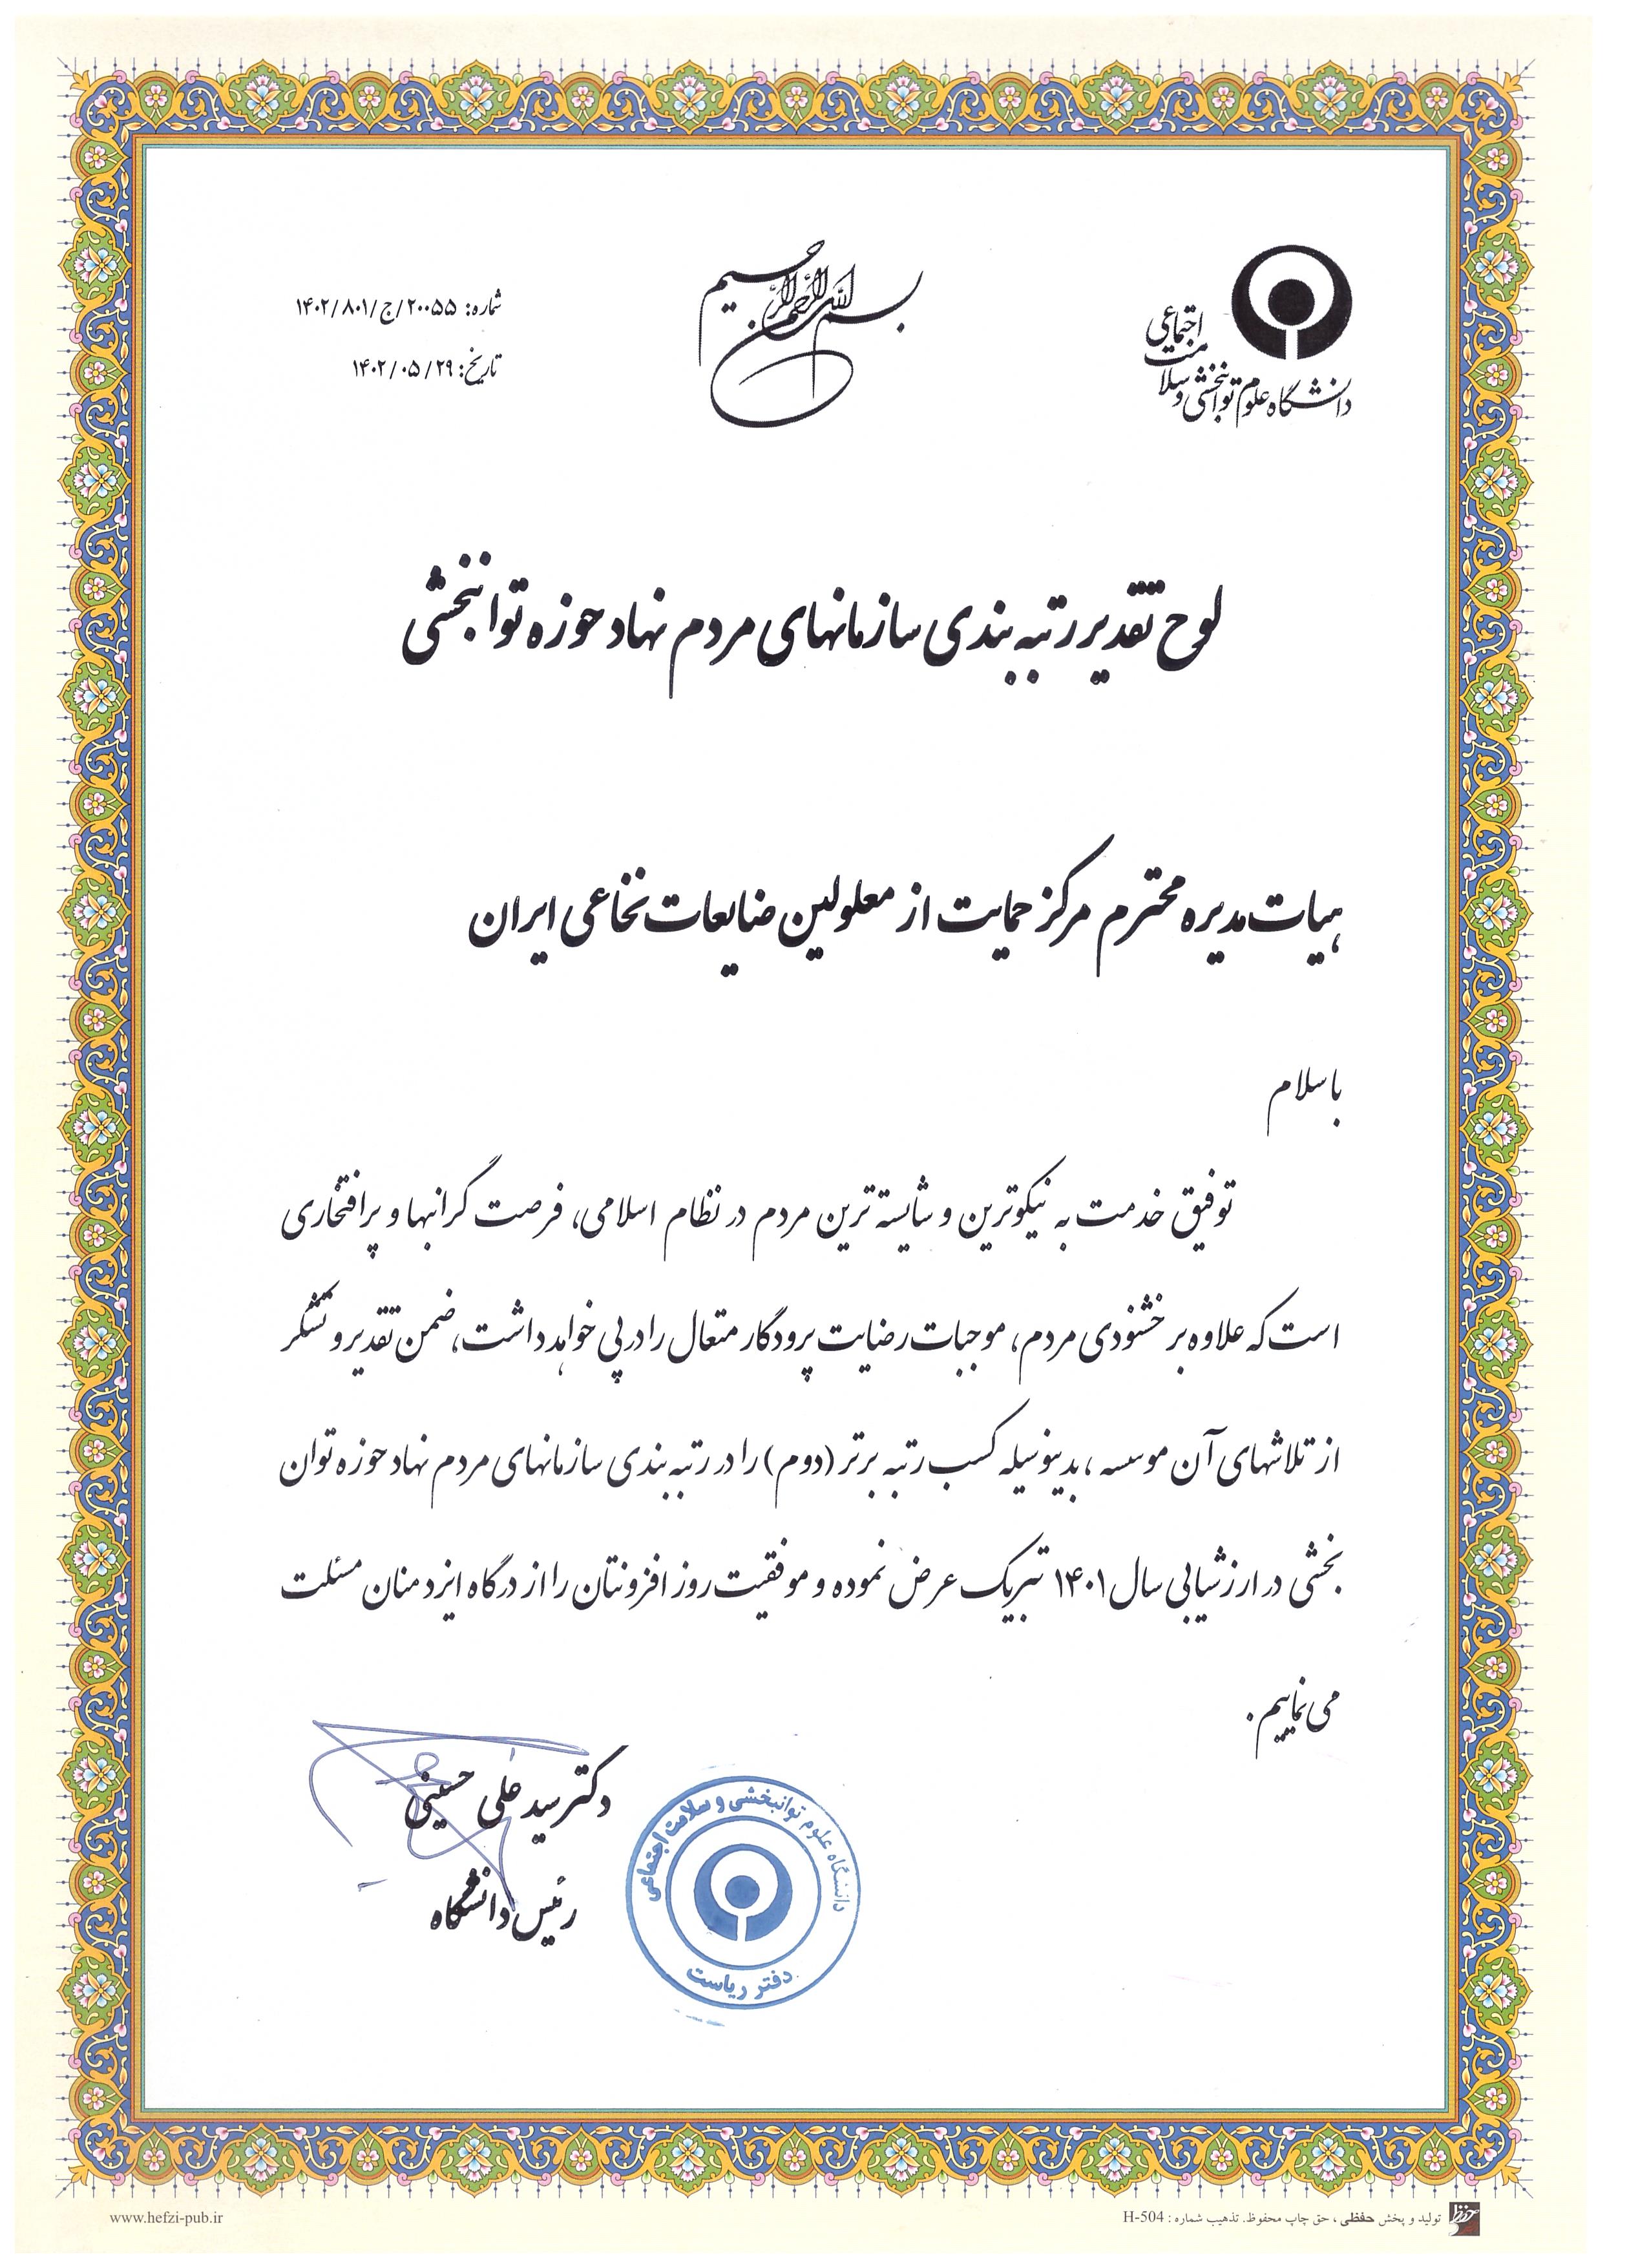 بسم الله الرحمن الرحیم
دانشگاه علوم توانبخشی و سلامت اجتماعی
شماره: ۱۴۰۲/۸۰۱/ج/۲۰۰۵۵
تاریخ: ۱۴۰۲/۰۵/۲۹
لوح تقدیر رتبه بندی سازمانهای مردم نهاد حوزه توانبخشی
هیات مدیره محترم مرکز حمایت از معلولین ضایعات نخاعی ایران
با سلام
توفیق خدمت به نیکوترین و شایسته ترین مردم در نظام اسلامی، فرصت گرانبها و پر افتخاری
است که علاوه بر خشنودی مردم، موجبات رضایت پرودگار متعال را در پی خواهد داشت، ضمن تقدیر و تشکر
از تلاشهای آن موسسه، بدینوسیله کسب رتبه برتر (دوم) را در رتبه بندی سازمانهای مردم نهاد حوزه توان
بخشی در ارزشیابی سال ۱۴۰۱ تبریک عرض نموده و موفقیت روز افزونتان را از درگاه ایزد منان مسئلت
می نماییم.
دکتر سید علی حسینی
رئیس دانشگاه
دانشگاه علوم توانبخشی و سلامت اجتماعی
دفتر ریاست
تولید و پخش حفظی، حق چاپ محفوظ. تذهیب شماره: H-504
www.hefzi-pub.ir